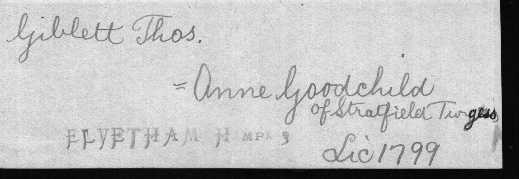 Giblett Thos.
= Anne Goodchild
of Stratfield Turgess
ELVETHAM H
Lic 1799